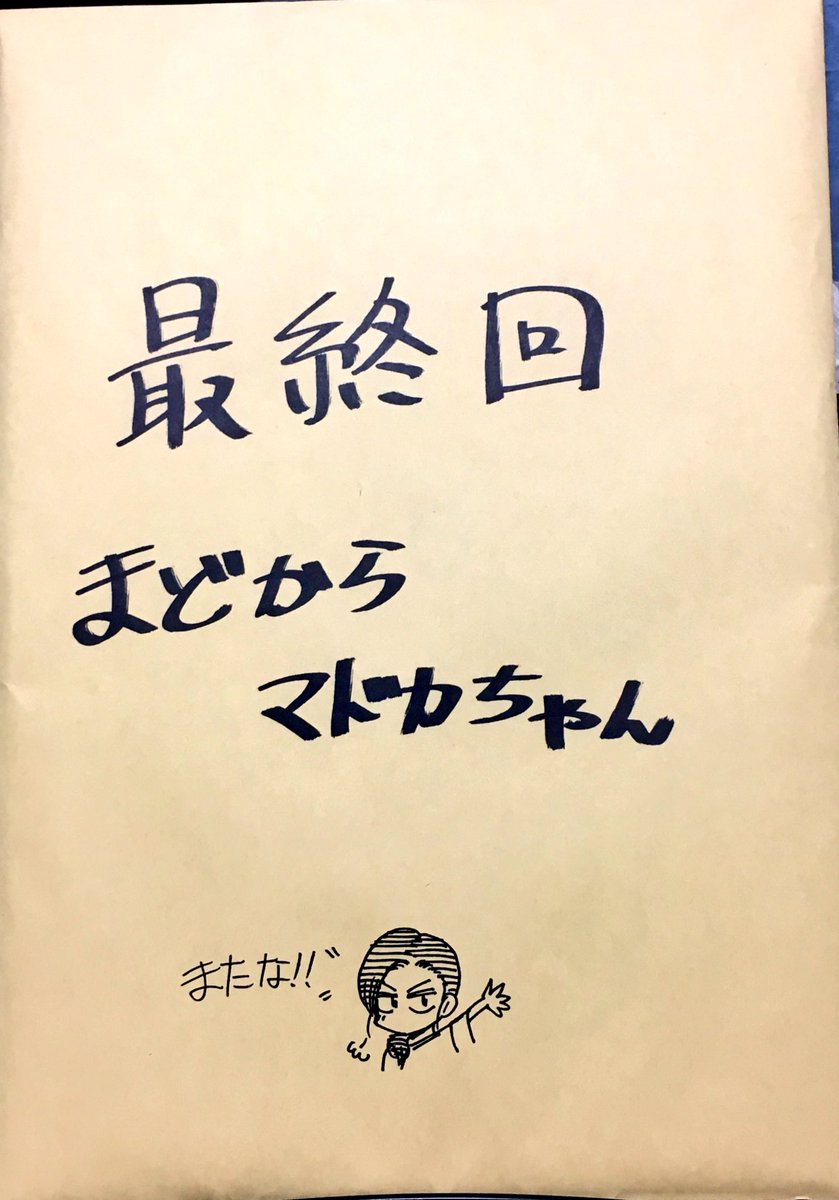 最終回
まどから
マドカちゃん
またな!!